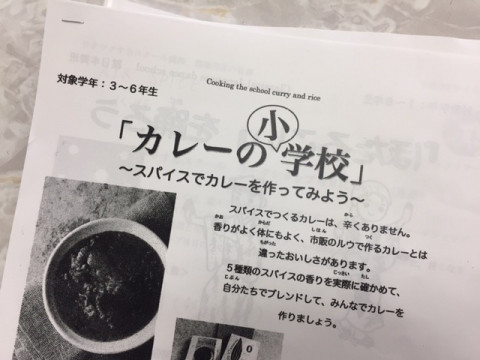 対象学年：３〜６年生
Cooking the school curry and rice
「カレーの小学校」
〜スパイスでカレーを作ってみよう〜
スパイスでつくるカレーは、辛くありません。
香りがよく体にもよく、市販のルウで作るカレーとは
違ったおいしさがあります。
５種類のスパイスの香りを実際に確かめて、
自分たちでブレンドして、みんなでカレーを
作りましょう。